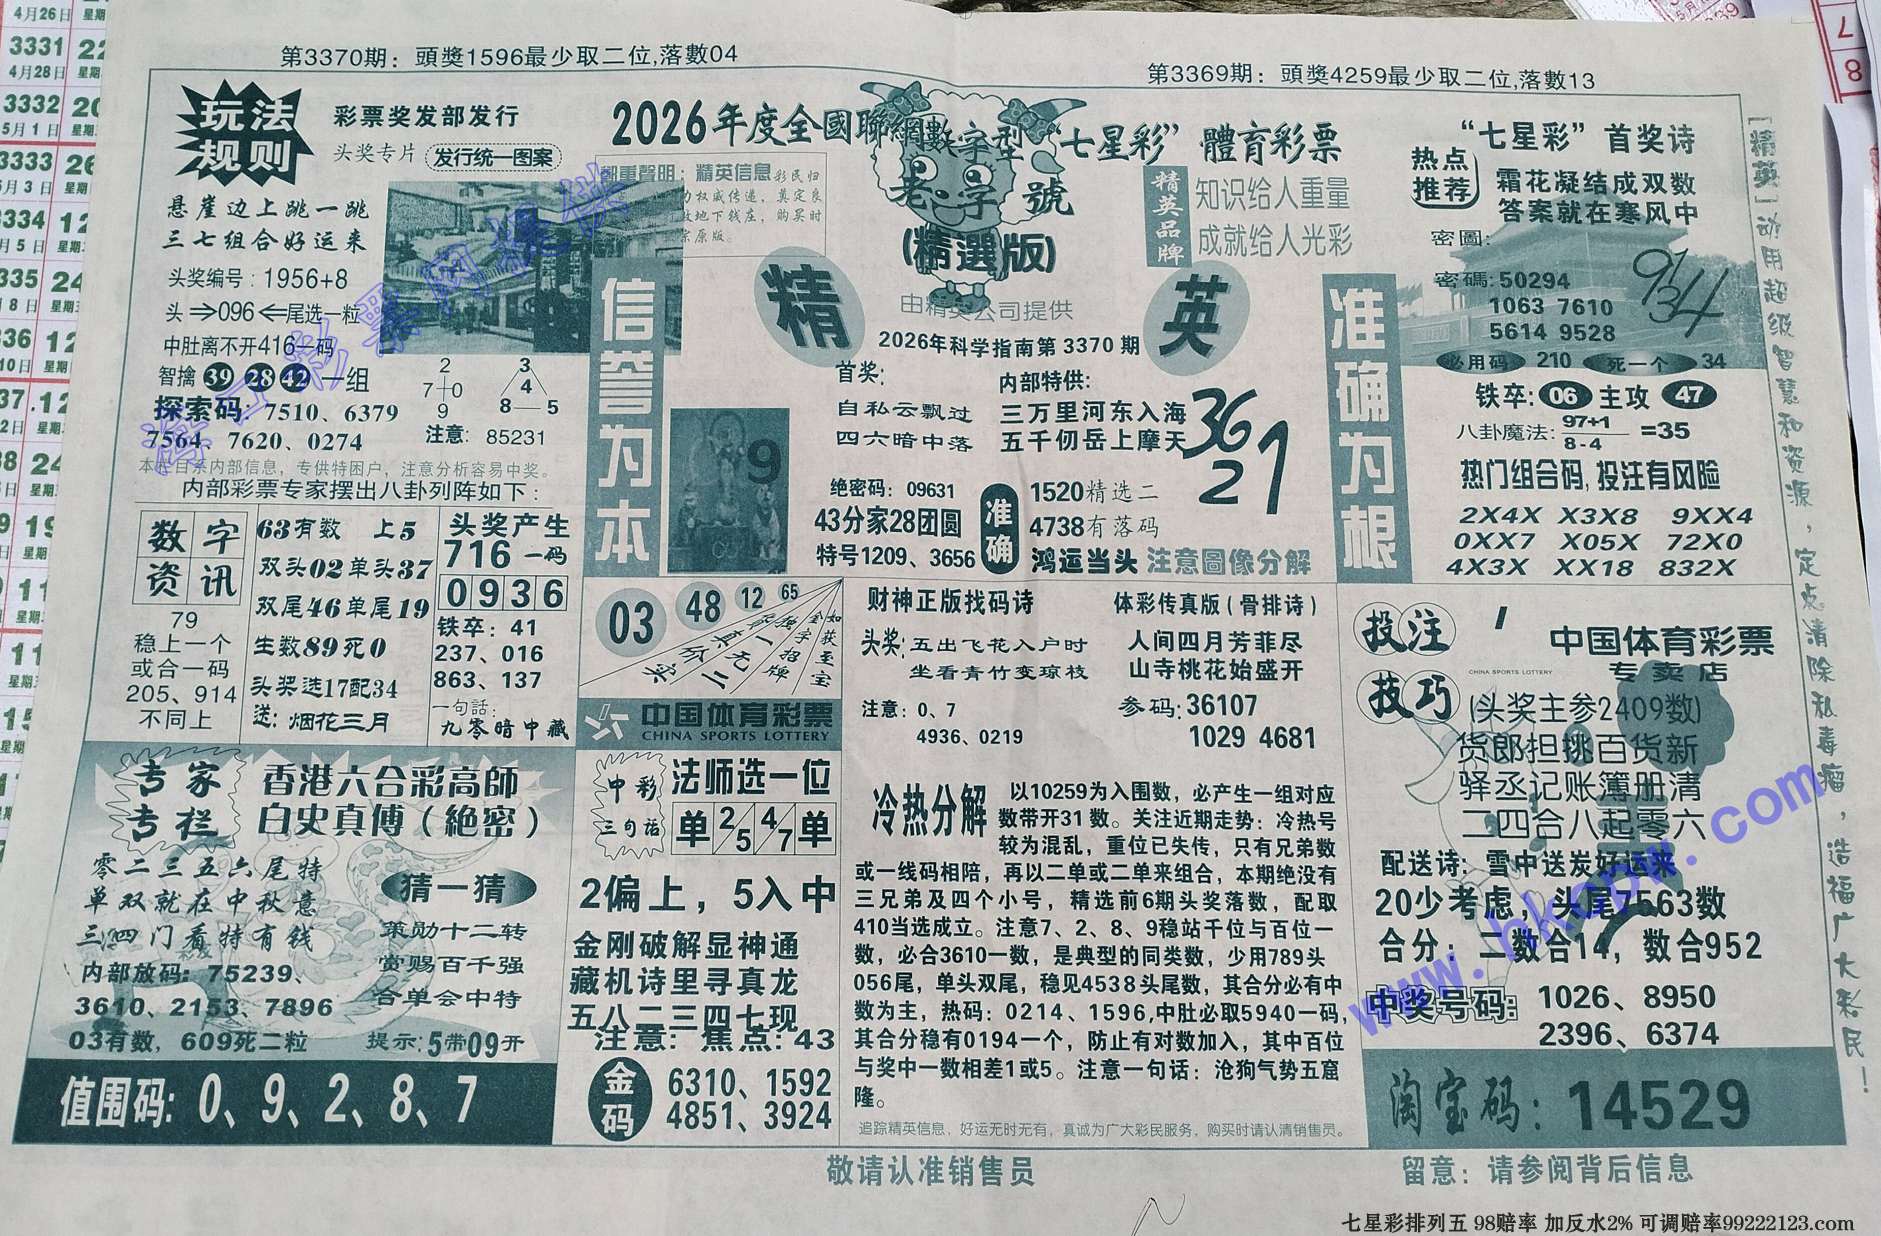 第3370期：頭獎1596最少取二位,落數04
第3369期：頭獎4259最少取二位,落數13
玩法规则
彩票奖发部发行
头奖专片 发行统一图案
悬崖边上跳一跳
三七组合好运来
头奖编号：1956+8
头⇒096⇐尾选一粒
中肚离不开416一码
智擒 39 28 42 一组
探索码：7510、6379
7564、7620、0274
2
7 0
9
3
4
8 5
注意：85231
本栏目系内部信息，专供特困户，注意分析容易中奖。
内部彩票专家摆出八卦列阵如下：
2026年度全國聯網數字型“七星彩”體育彩票
鄭重聲明：精英信息彩民归
老字號
(精選版)
由精英公司提供
精英
2026年科学指南第3370期
精英品牌
知识给人重量
成就给人光彩
信誉为本
准确为根
9
首奖：
自私云飘过
四六暗中落
内部特供：
三万里河东入海
五千仞岳上摩天
36
27
绝密码：09631
43分家28团圆
特号1209、3656
准确
1520精选二
4738有落码
鸿运当头 注意圖像分解
“七星彩”首奖诗
热点推荐
霜花凝结成双数
答案就在寒风中
密圖：
密碼：50294
1063 7610
5614 9528
必用码 210 死一个 34
铁卒：06 主攻 47
八卦魔法：97+1
8-4
=35
热门组合码，投注有风险
2X4X X3X8 9XX4
0XX7 X05X 72X0
4X3X XX18 832X
【精英】动用超级智慧和资源，定点清除私毒瘤，造福广大彩民！
数字资讯
79
稳上一个
或合一码
205、914
不同上
63有数 上5
双头02单头37
双尾46单尾19
生数89死0
头奖选17配34
送：烟花三月
头奖产生
716一码
0936
铁卒：41
237、016
863、137
一句话：
九零暗中藏
03 48 12 65
中国体育彩票
CHINA SPORTS LOTTERY
财神正版找码诗
头奖：五出飞花入户时
坐看青竹变琼枝
注意：0、7
4936、0219
体彩传真版（骨排诗）
人间四月芳菲尽
山寺桃花始盛开
参码：36107
1029 4681
投注技巧
中国体育彩票
CHINA SPORTS LOTTERY
专卖店
(头奖主参2409数)
货郎担挑百货新
驿丞记账簿册清
二四合八起零六
配送诗：雪中送炭好运来
20少考虑，头尾7563数
合分：二数合14，数合952
中奖号码：1026、8950
2396、6374
淘宝码：14529
专家专栏
香港六合彩高師
白史真傅（絶密）
零二三五六尾特
单双就在中秋意
三四门看特有钱
内部放码：75239、
3610、2153、7896
03有数，609死二粒
猜一猜
策勋十二转
赏赐百千强
合单会中特
提示：5带09开
值围码：0、9、2、8、7
中彩三句话
法师选一位
单 2/5 4/7 单
2偏上，5入中
金刚破解显神通
藏机诗里寻真龙
五八二三四七现
注意：焦点：43
金码
6310、1592
4851、3924
冷热分解
以10259为入围数，必产生一组对应
数带开31数。关注近期走势：冷热号
较为混乱，重位已失传，只有兄弟数
或一线码相陪，再以二单或二单来组合，本期绝没有
三兄弟及四个小号，精选前6期头奖落数，配取
410当选成立。注意7、2、8、9稳站千位与百位一
数，必合3610一数，是典型的同类数，少用789头
056尾，单头双尾，稳见4538头尾数，其合分必有中
数为主，热码：0214、1596,中肚必取5940一码，
其合分稳有0194一个，防止有对数加入，其中百位
与奖中一数相差1或5。注意一句话：沧狗气势五窟
隆。
追踪精英信息，好运无时无有，真诚为广大彩民服务，购买时请认清销售员。
敬请认准销售员
留意：请参阅背后信息
www.hkcpw.com
七星彩排列五 98赔率 加反水2% 可调赔率99222123.com